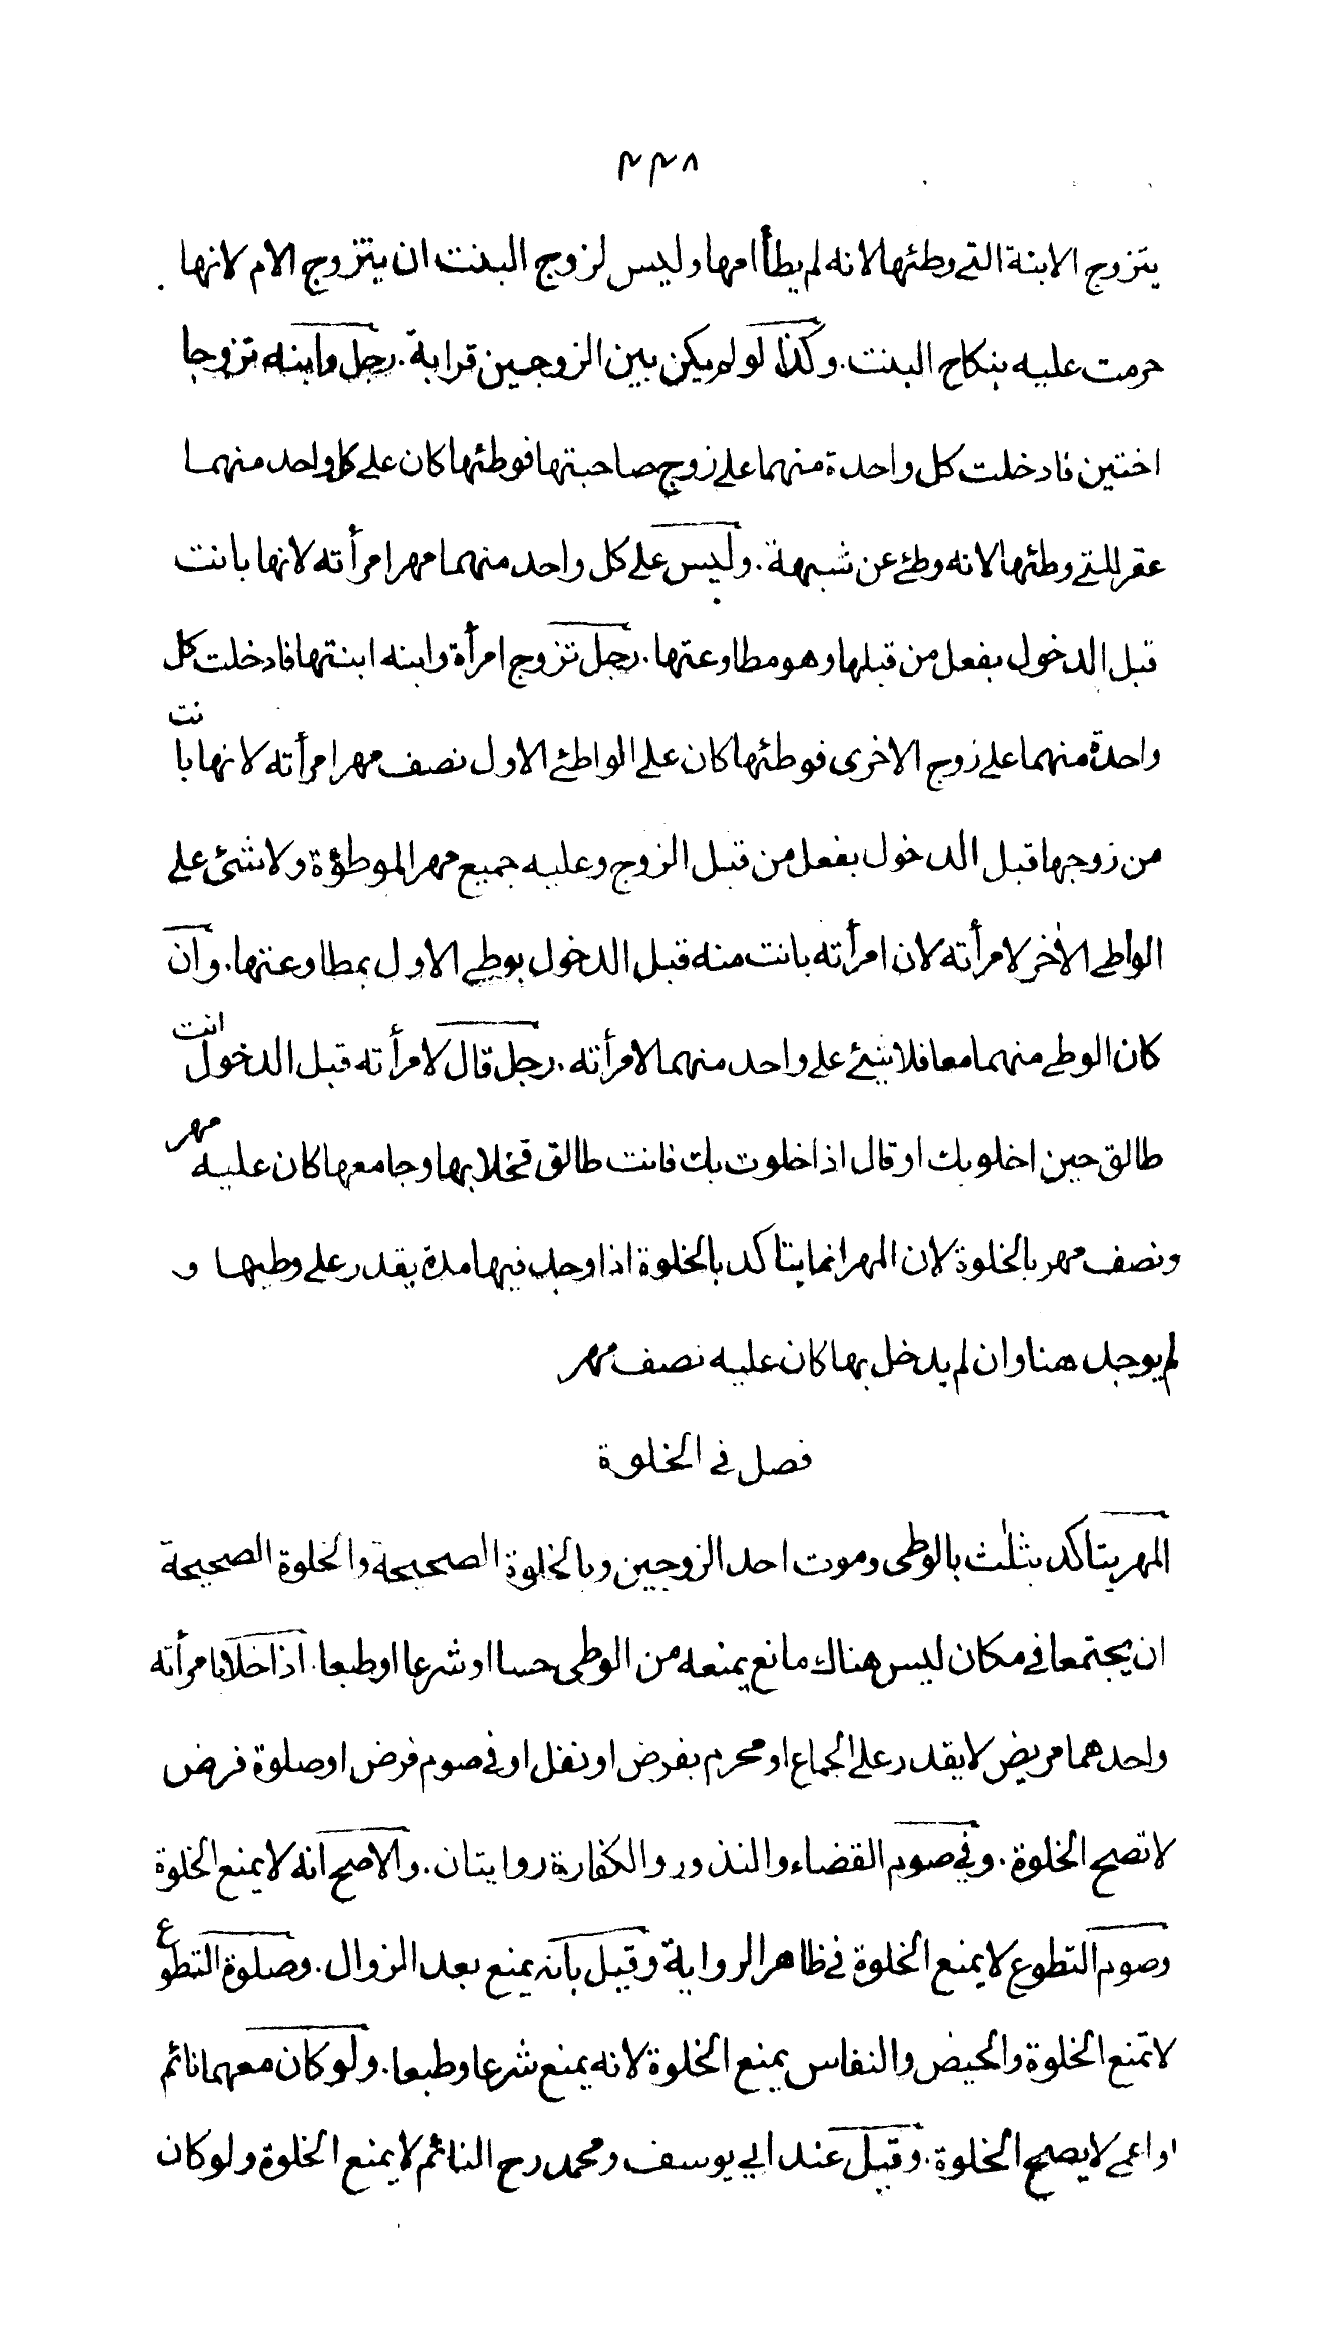 ٤٤٨
يتزوج الابنة التى وطئها لانه لم يطأ امها وليس لزوج البنت ان يتزوج الام لانها
حرمت عليه بنكاح البنت. وكذا لو لم يكن بين الزوجين قرابة. رجل وابنه تزوجا
اختين فادخلت كل واحدة منهما على زوج صاحبتها فوطئها كان على كل واحد منهما
عقر للتى وطئها لانه وطئ عن شبهة. وليس على كل واحد منهما مهر امرأته لانها بانت
قبل الدخول بفعل من قبلها وهو مطاوعتها. رجل تزوج امرأة وابنه ابنتها فادخلت كل
واحدة منهما على زوج الاخرى فوطئها كان على الواطئ الاول نصف مهر امرأته لانها بانت
من زوجها قبل الدخول بفعل من قبل الزوج وعليه جميع مهر الموطؤة ولا شئ على
الواطى الأخر لامرأته لان امرأته بانت منه قبل الدخول بوطى الاول بمطاوعتها. وان
كان الوطى منهما معا فلا شئ على واحد منهما لامرأته. رجل قال لامرأته قبل الدخول انت
طالق حين اخلو بك او قال اذا خلوت بك فانت طالق فخلا بها وجامعها كان عليه مهر
ونصف مهر بالخلوة لان المهر انما يتاكد بالخلوة اذا وجد فيها مدة يقدر على وطيها و
لم يوجد هنا وان لم يدخل بها كان عليه نصف مهر
فصل فى الخلوة
المهر يتاكد بثلث بالوطى وموت احد الزوجين وبالخلوة الصحيحة والخلوة الصحيحة
ان يجتمعا فى مكان ليس هناك مانع يمنعه من الوطى حسا او شرعا او طبعا. اذا خلا بامرأته
واحدهما مريض لا يقدر على الجماع او محرم بفرض او نفل او فى صوم فرض او صلوة فرض
لا تصح الخلوة. وفى صوم القضاء والنذور والكفارة روايتان. والاصح انه لا يمنع الخلوة
وصوم التطوع لا يمنع الخلوة فى ظاهر الرواية وقيل بأنه يمنع بعد الزوال. وصلوة التطوع
لا تمنع الخلوة والحيض والنفاس يمنع الخلوة لانه يمنع شرعا وطبعا. ولو كان معهما نائم
او اعمى لا يصح الخلوة. وقيل عند ابي يوسف ومحمد رح النائم لا يمنع الخلوة ولو كان